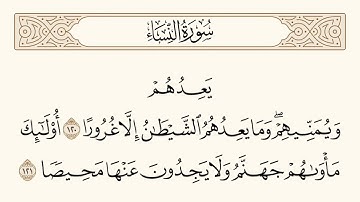 سُورَةُ النِّسَاءِ
يَعِدُهُمْ
وَيُمَنِّيهِمْ ۖ وَمَا يَعِدُهُمُ ٱلشَّيْطَـٰنُ إِلَّا غُرُورًا ١٢٠ أُو۟لَـٰٓئِكَ
مَأْوَىٰهُمْ جَهَنَّمُ وَلَا يَجِدُونَ عَنْهَا مَحِيصًا ١٢١